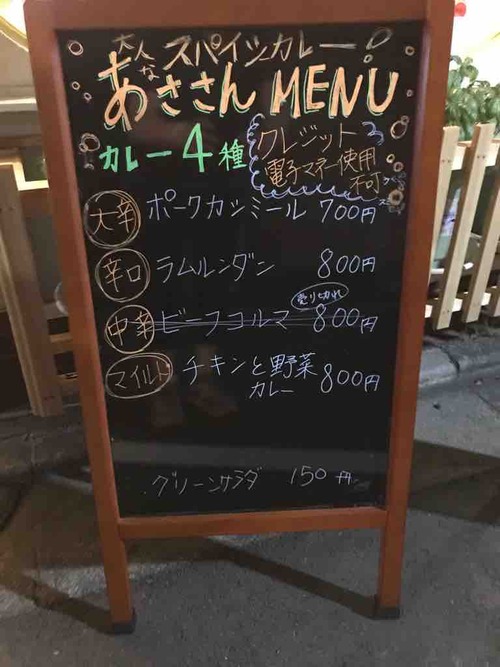 大人な スパイシカレー
あささん MENU
カレー4種
クレジット
電子マネー使用
不可
大辛 ポークカシミール 700円
辛口 ラムルンダン 800円
売り切れ
中辛 ビーフコルマ 800円
マイルド チキンと野菜
カレー 800円
グリーンサラダ 150円